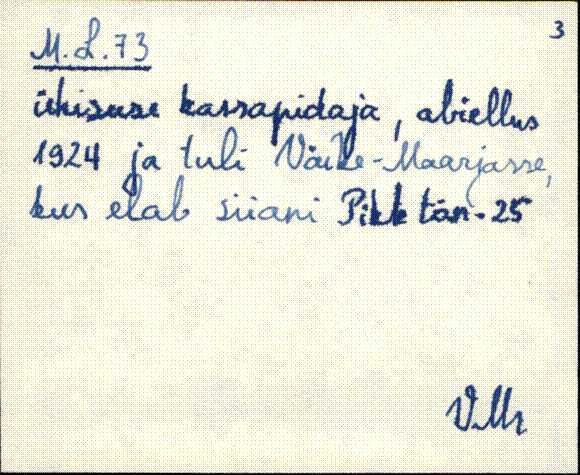 3
M.L.73
ühisuse kassapidaja, abiellus
1924 ja tuli Väike-Maarjasse,
kus elab siiani Pikk tän. 25
VMr